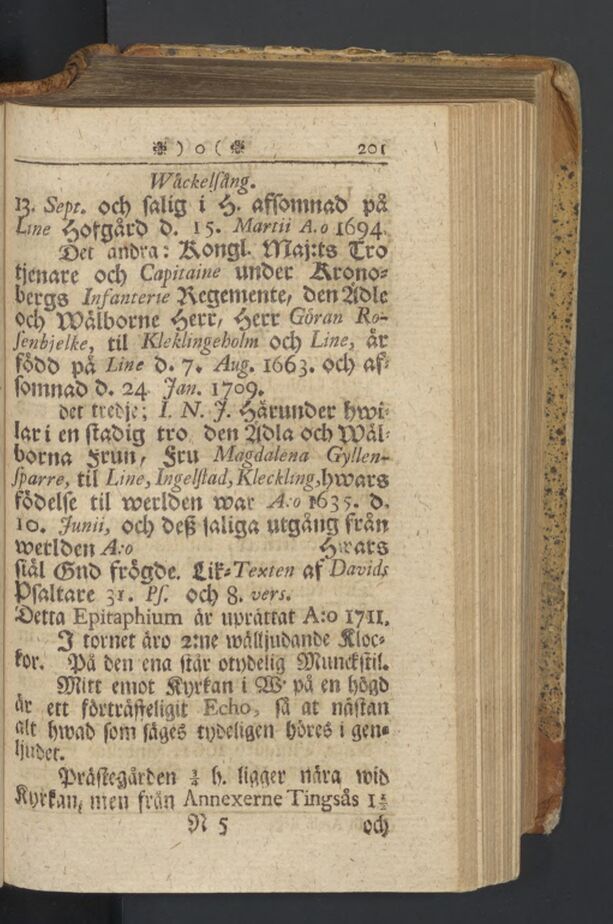 ❉ ) o ( ❉ 201
Wäckelsång.
13. Sept. och salig i H. afsomnad på
Line Hofgård d. 15. Martii A.o 1694.
Det andra: Kongl. Maj:ts Tro
tjenare och Capitaine under Krono-
bergs Infanterie Regemente, den Ädle
och Wälborne Herr, Herr Göran Ro-
senbjelke, til Kleklingeholm och Line, är
född på Line d. 7. Aug. 1663. och af-
somnad d. 24 Jan. 1709.
det tredje; I. N. J. Härunder hwi-
lar i en stadig tro den Ädla och Wäl-
borna Frun, Fru Magdalena Gyllen-
sparre, til Line, Ingelstad, Kleckling, hwars
födelse til werlden war A:o 1635. d.
10. Junii, och deß saliga utgång från
werlden A:o Hwars
siäl Gnd frögde. Lik-Texten af Davids
Psaltare 31. Ps. och 8. vers.
Detta Epitaphium är uprättat A:o 1711.
I tornet äro 2:ne wälljudande Kloc-
kor. På den ena står otydelig Munckstil.
Mitt emot Kyrkan i W. på en högd
är ett förträffeligit Echo, så at nästan
alt hwad som säges tydeligen höres i gen-
ljudet.
Prästegården ¾ h. ligger nära wid
Kyrkan, men från Annexerne Tingsås 1½
N 5 och